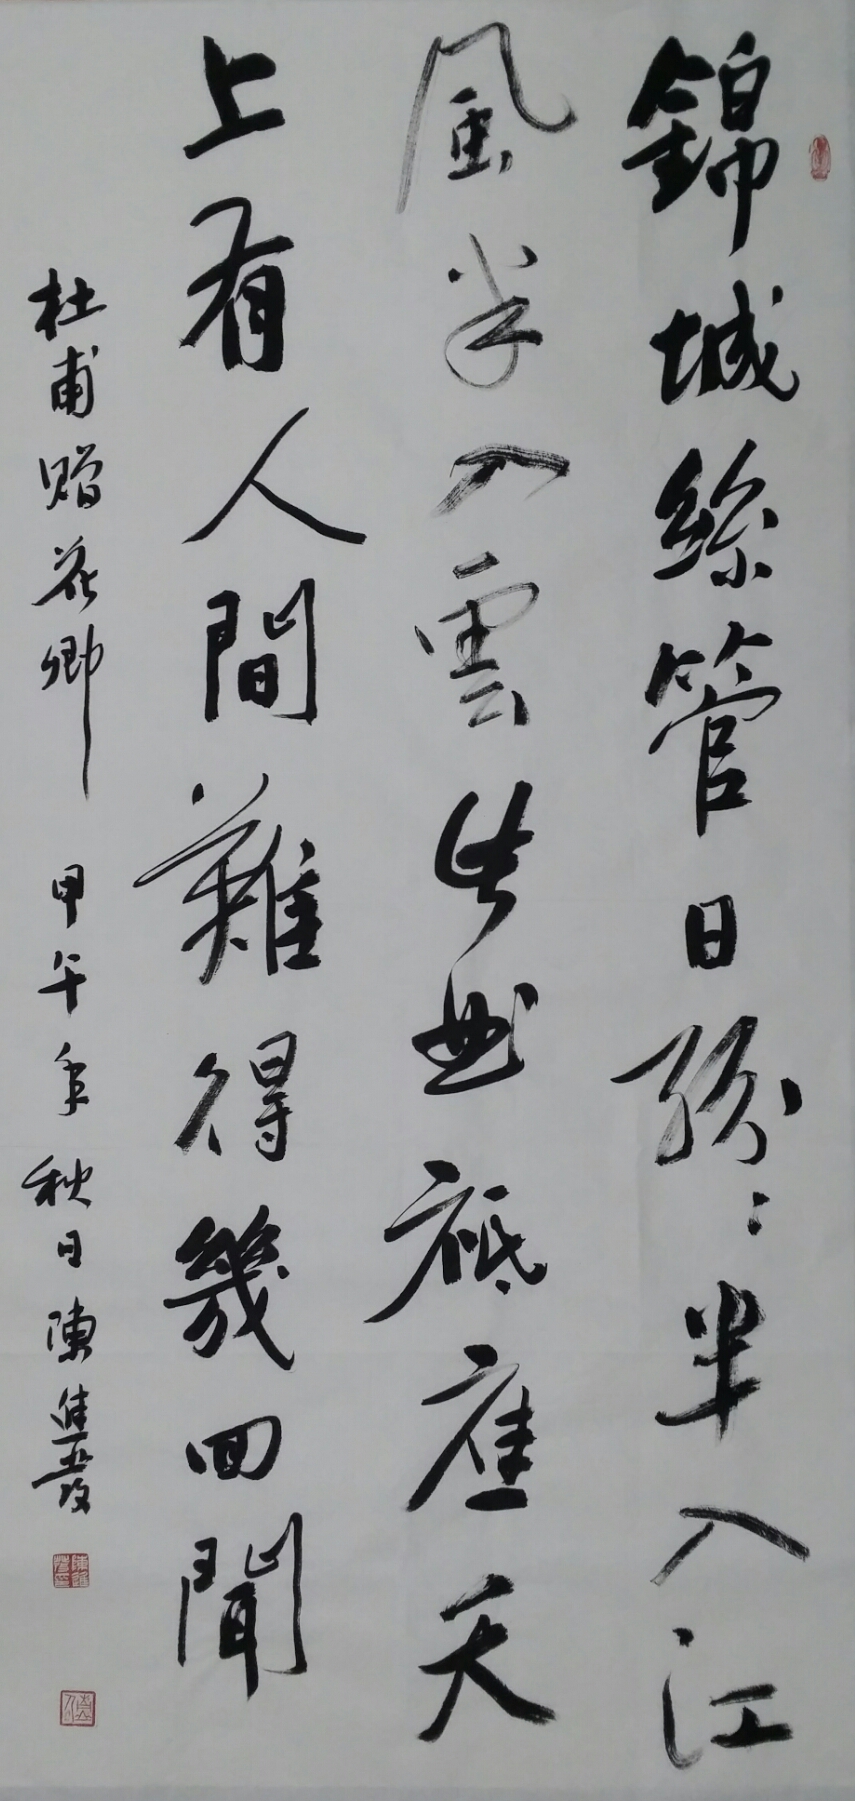 錦城絲管日紛〻半入江
風半入雲此曲祗應天
上有人間難得幾回聞
杜甫贈花卿 甲午年秋日陳進發